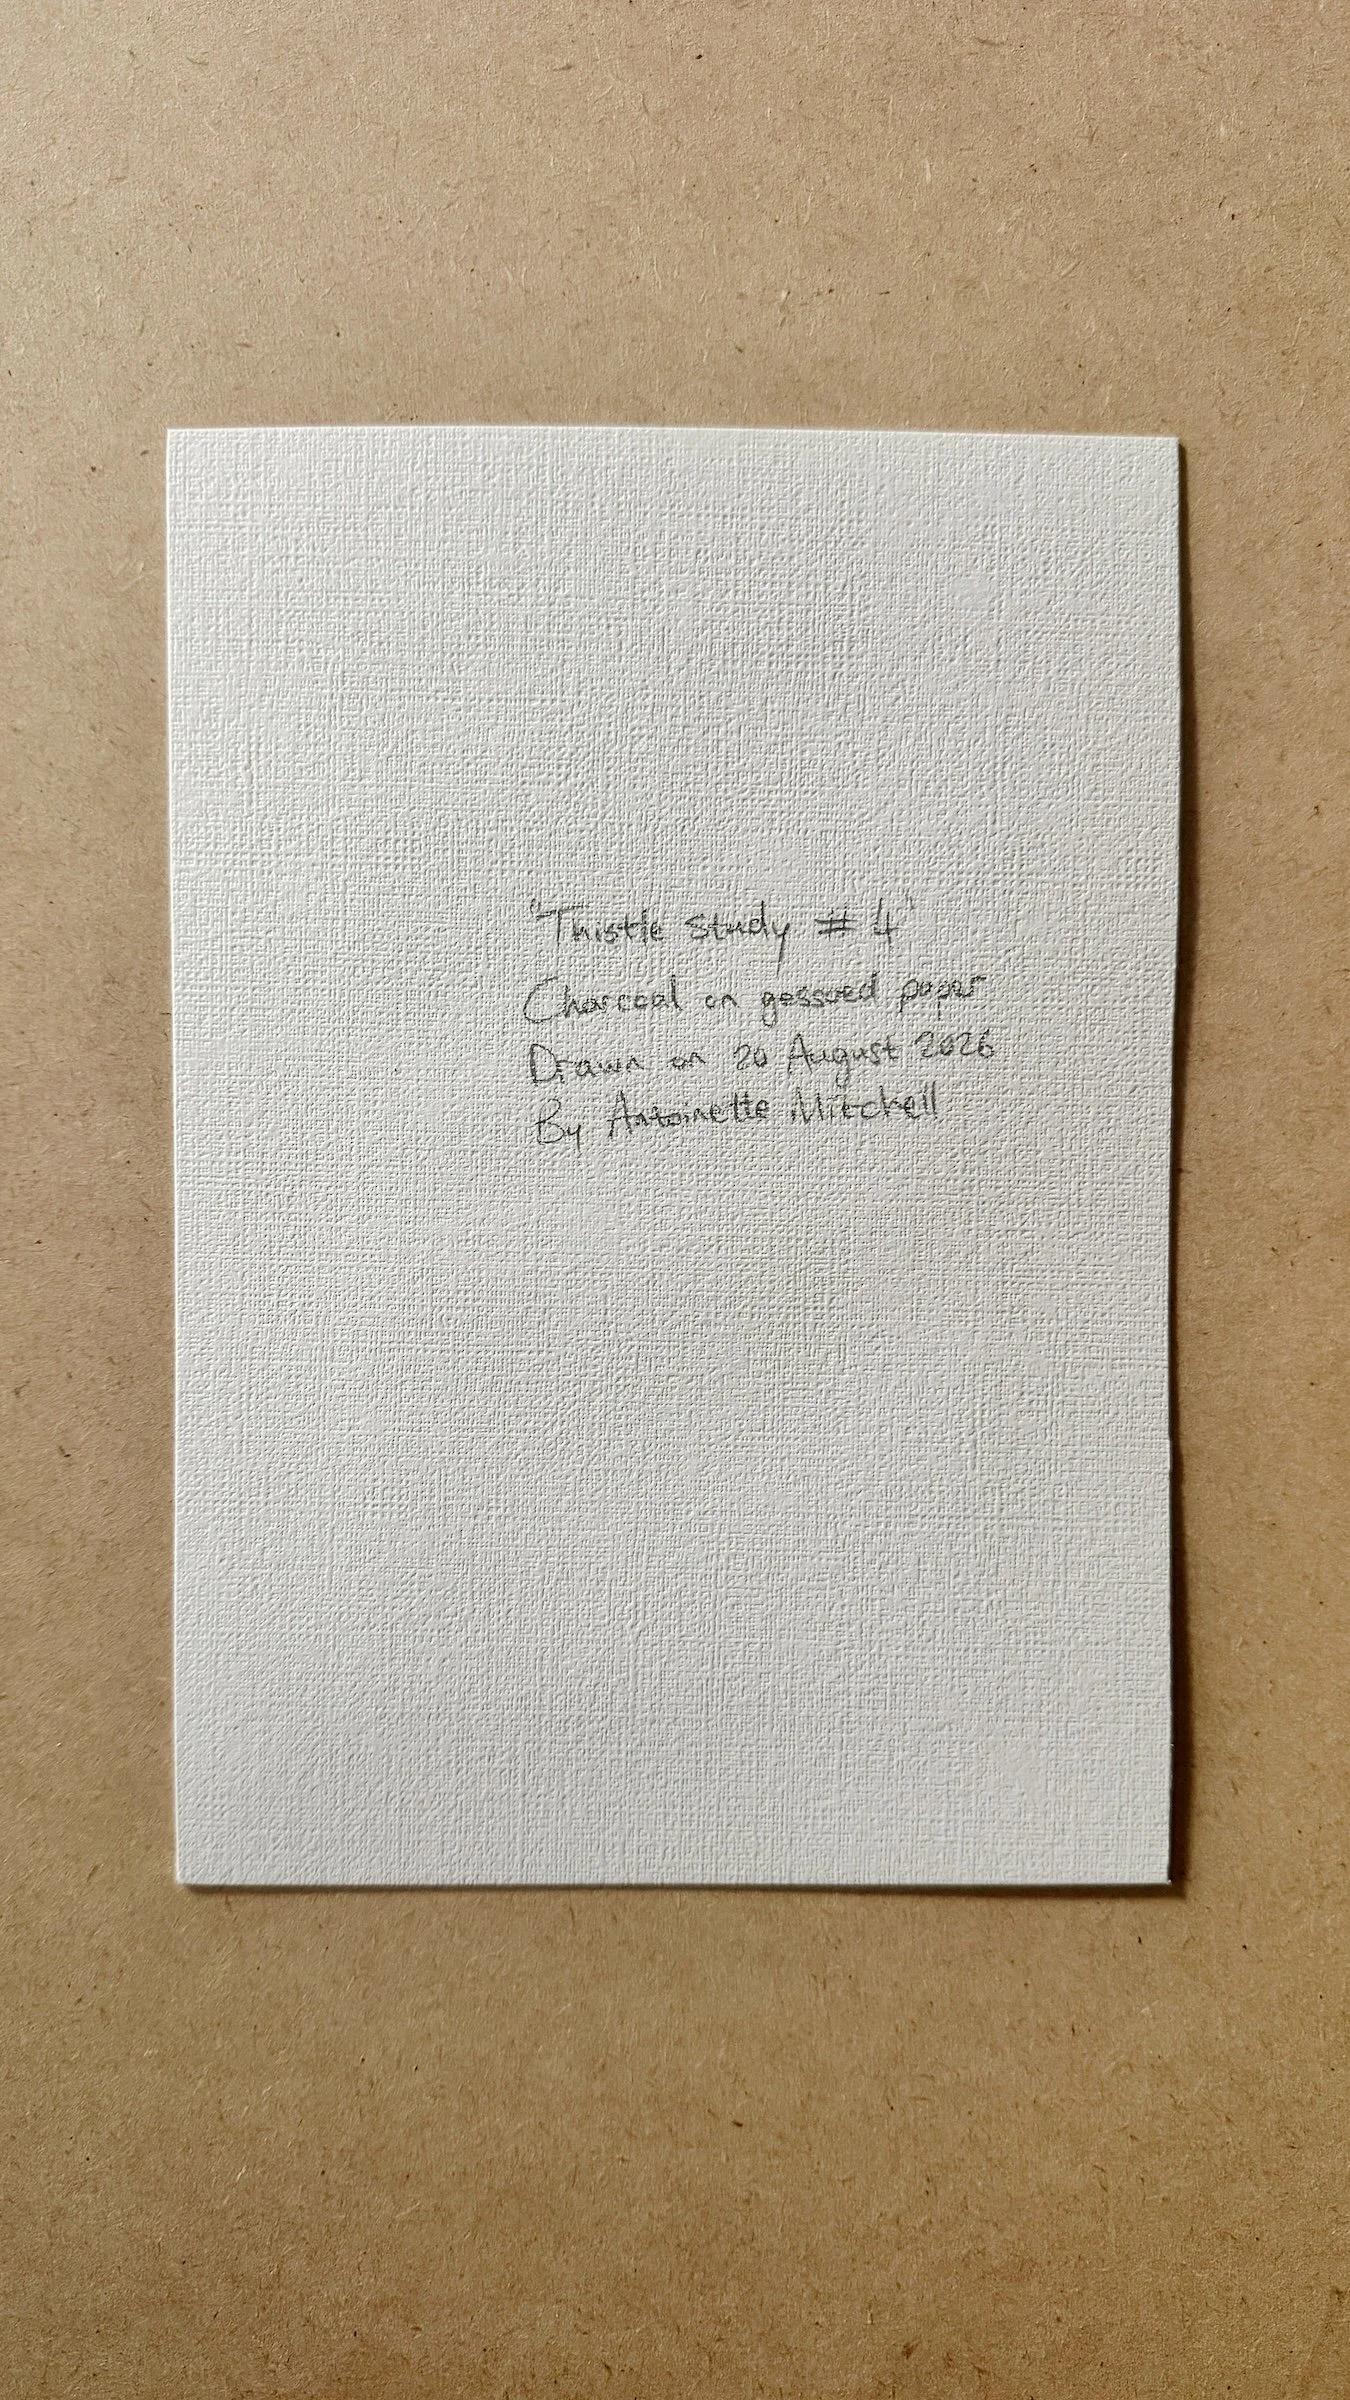 "Thistle Study # 4"
Charcoal on gessoed paper
Drawn on 20 August 2026
By Antoinette Mitchell